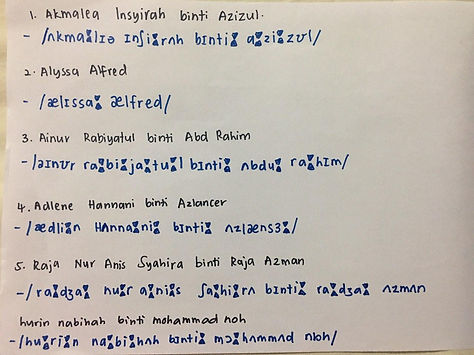 1. Akmalea Insyirah binti Azizul.
- /ʌkmaːlɪə ɪnʃiːrʌh bɪntiː aːziːzʊl/
2. Alyssa Alfred
- /ælɪssaː ælfred/
3. Ainur Rabiyatul binti Abd Rahim
- /əɪnʊr raːbiːjaːtuːl bɪntiː ʌbduː raːhɪm/
4. Adlene Hannani binti Azlancer
- /ædliːn Hʌnnaːniː bɪntiː ʌzlænsɜː/
5. Raja Nur Anis Syahira binti Raja Azman
- / raːdʒaː nuːr aːniːs ʃaːhiːrʌ bɪntiː raːdʒaː ʌzmʌn
hurin nabihah binti mohammad noh
- /huːriːn naːbiːhʌh bɪntiː mɔːhʌmmʌd nɒh/